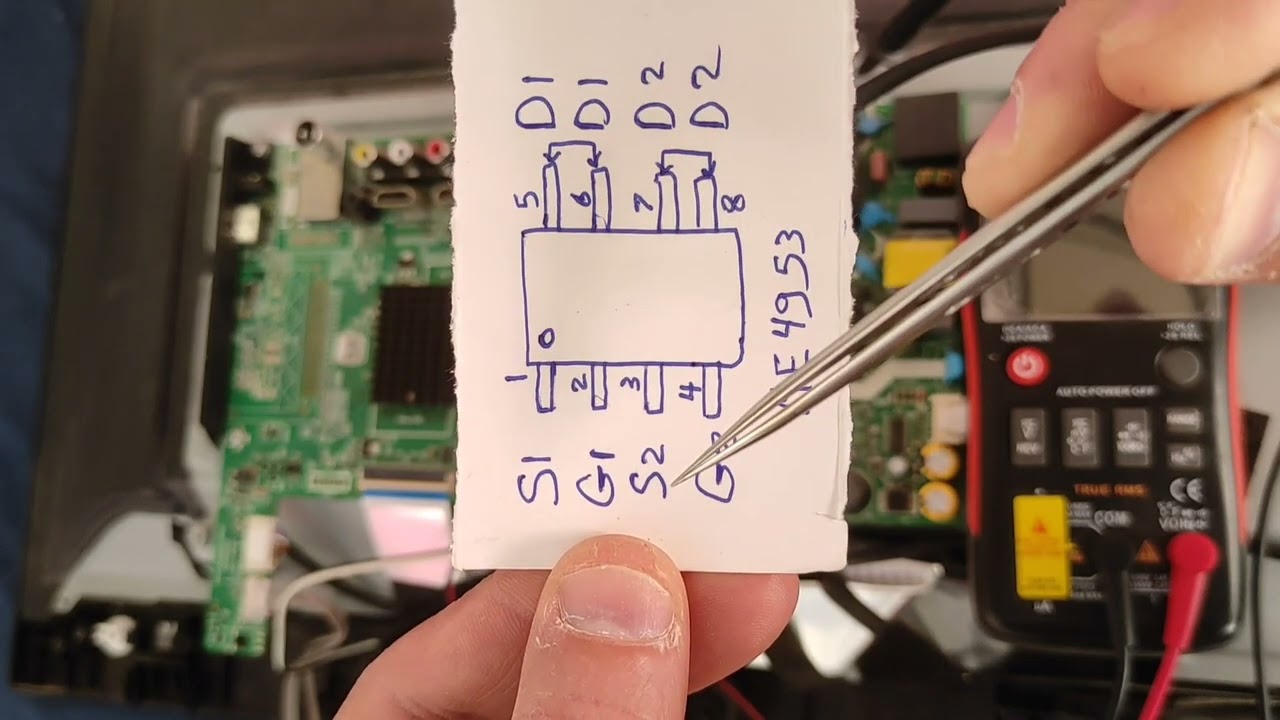 D1 D1 D2 D2
5 6 7 8
1 2 3 4
S1 G1 S2
4953
AUTO POWER OFF
TRUE RMS
COM
CE